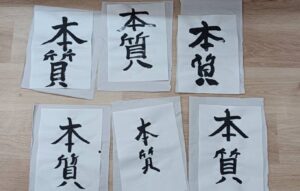 本質
本質
本質
本質
本質
本質